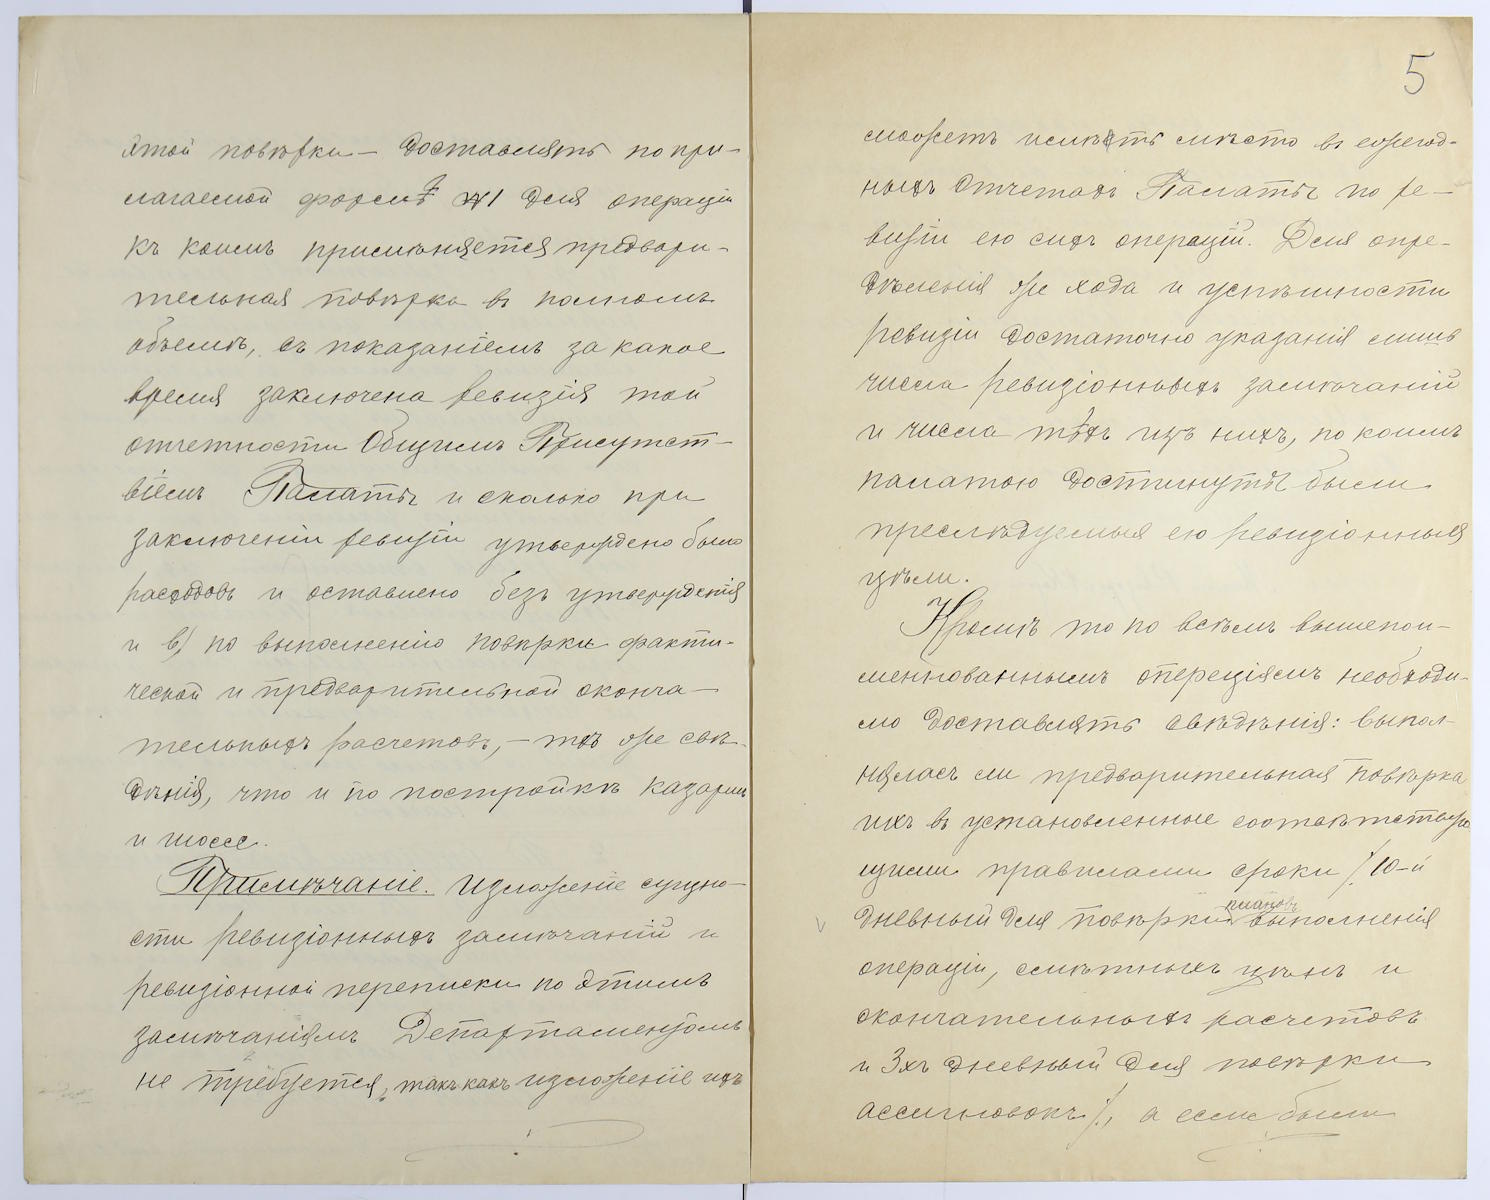 этой повѣрки — доставлять по при-
лагаемой формѣ №1 для операціи
къ коимъ примѣняется предвари-
тельная повѣрка въ полномъ
объемѣ, съ показаніемъ за какое
время заключена ревизія той
отчетности Общимъ Присутст-
віемъ Палаты и сколько при
заключеніи ревизіи утверждено было
расходовъ и оставлено безъ утвержденія
и в) по выполненію повѣрки факти-
ческой и предварительной оконча-
тельныхъ расчетовъ, — тѣ же свѣ-
дѣнія, что и по постройкѣ казармъ
и шоссе.
Примѣчаніе. Изложеніе сущно-
сти ревизіонныхъ замѣчаній и
ревизіонной переписки по этимъ
замѣчаніямъ Департаментомъ
не требуется, такъ какъ изложеніе ихъ
5
можетъ имѣть мѣсто въ ежегод-
ныхъ отчетахъ Палаты по ре-
визіи ею сихъ операцій. Для опре-
дѣленія же хода и успѣшности
ревизіи достаточно указанія лишь
числа ревизіонныхъ замѣчаній
и числа тѣхъ изъ нихъ, по коимъ
палатою достигнуты были
преслѣдуемыя ею ревизіонныя
цѣли.
Кромѣ то по всѣмъ вышепои-
менованнымъ операціямъ необходи-
мо доставлять свѣдѣнія: выпол-
нялась ли предварительная повѣрка
ихъ въ установленные соотвѣтствую
щими правилами сроки /. 10-й
дневный для повѣрки плановъ выполненія
операціи, смѣтныхъ цѣнъ и
окончательныхъ расчетовъ
и 3хъ дневный для повѣрки
ассигновокъ /., а если были